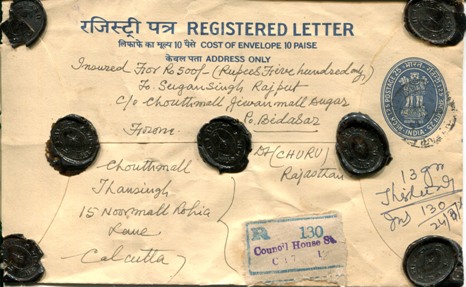 रजिस्ट्री पत्र REGISTERED LETTER
लिफाफे का मूल्य 10 पैसे COST OF ENVELOPE 10 PAISE
केवल पता ADDRESS ONLY
Insured For Rs 500/- (Rupees Five hundred only)
To Sugansingh Rajput
c/o Chouthmall Jiwanmall Dugar
Po. Bidasar
From
Dt (CHURU)
Rajasthan
Chouthmall
Thansingh
15 Noormall Lohia
Lane
Calcutta
13 gm
130
R 130
Council House St.
INDIA